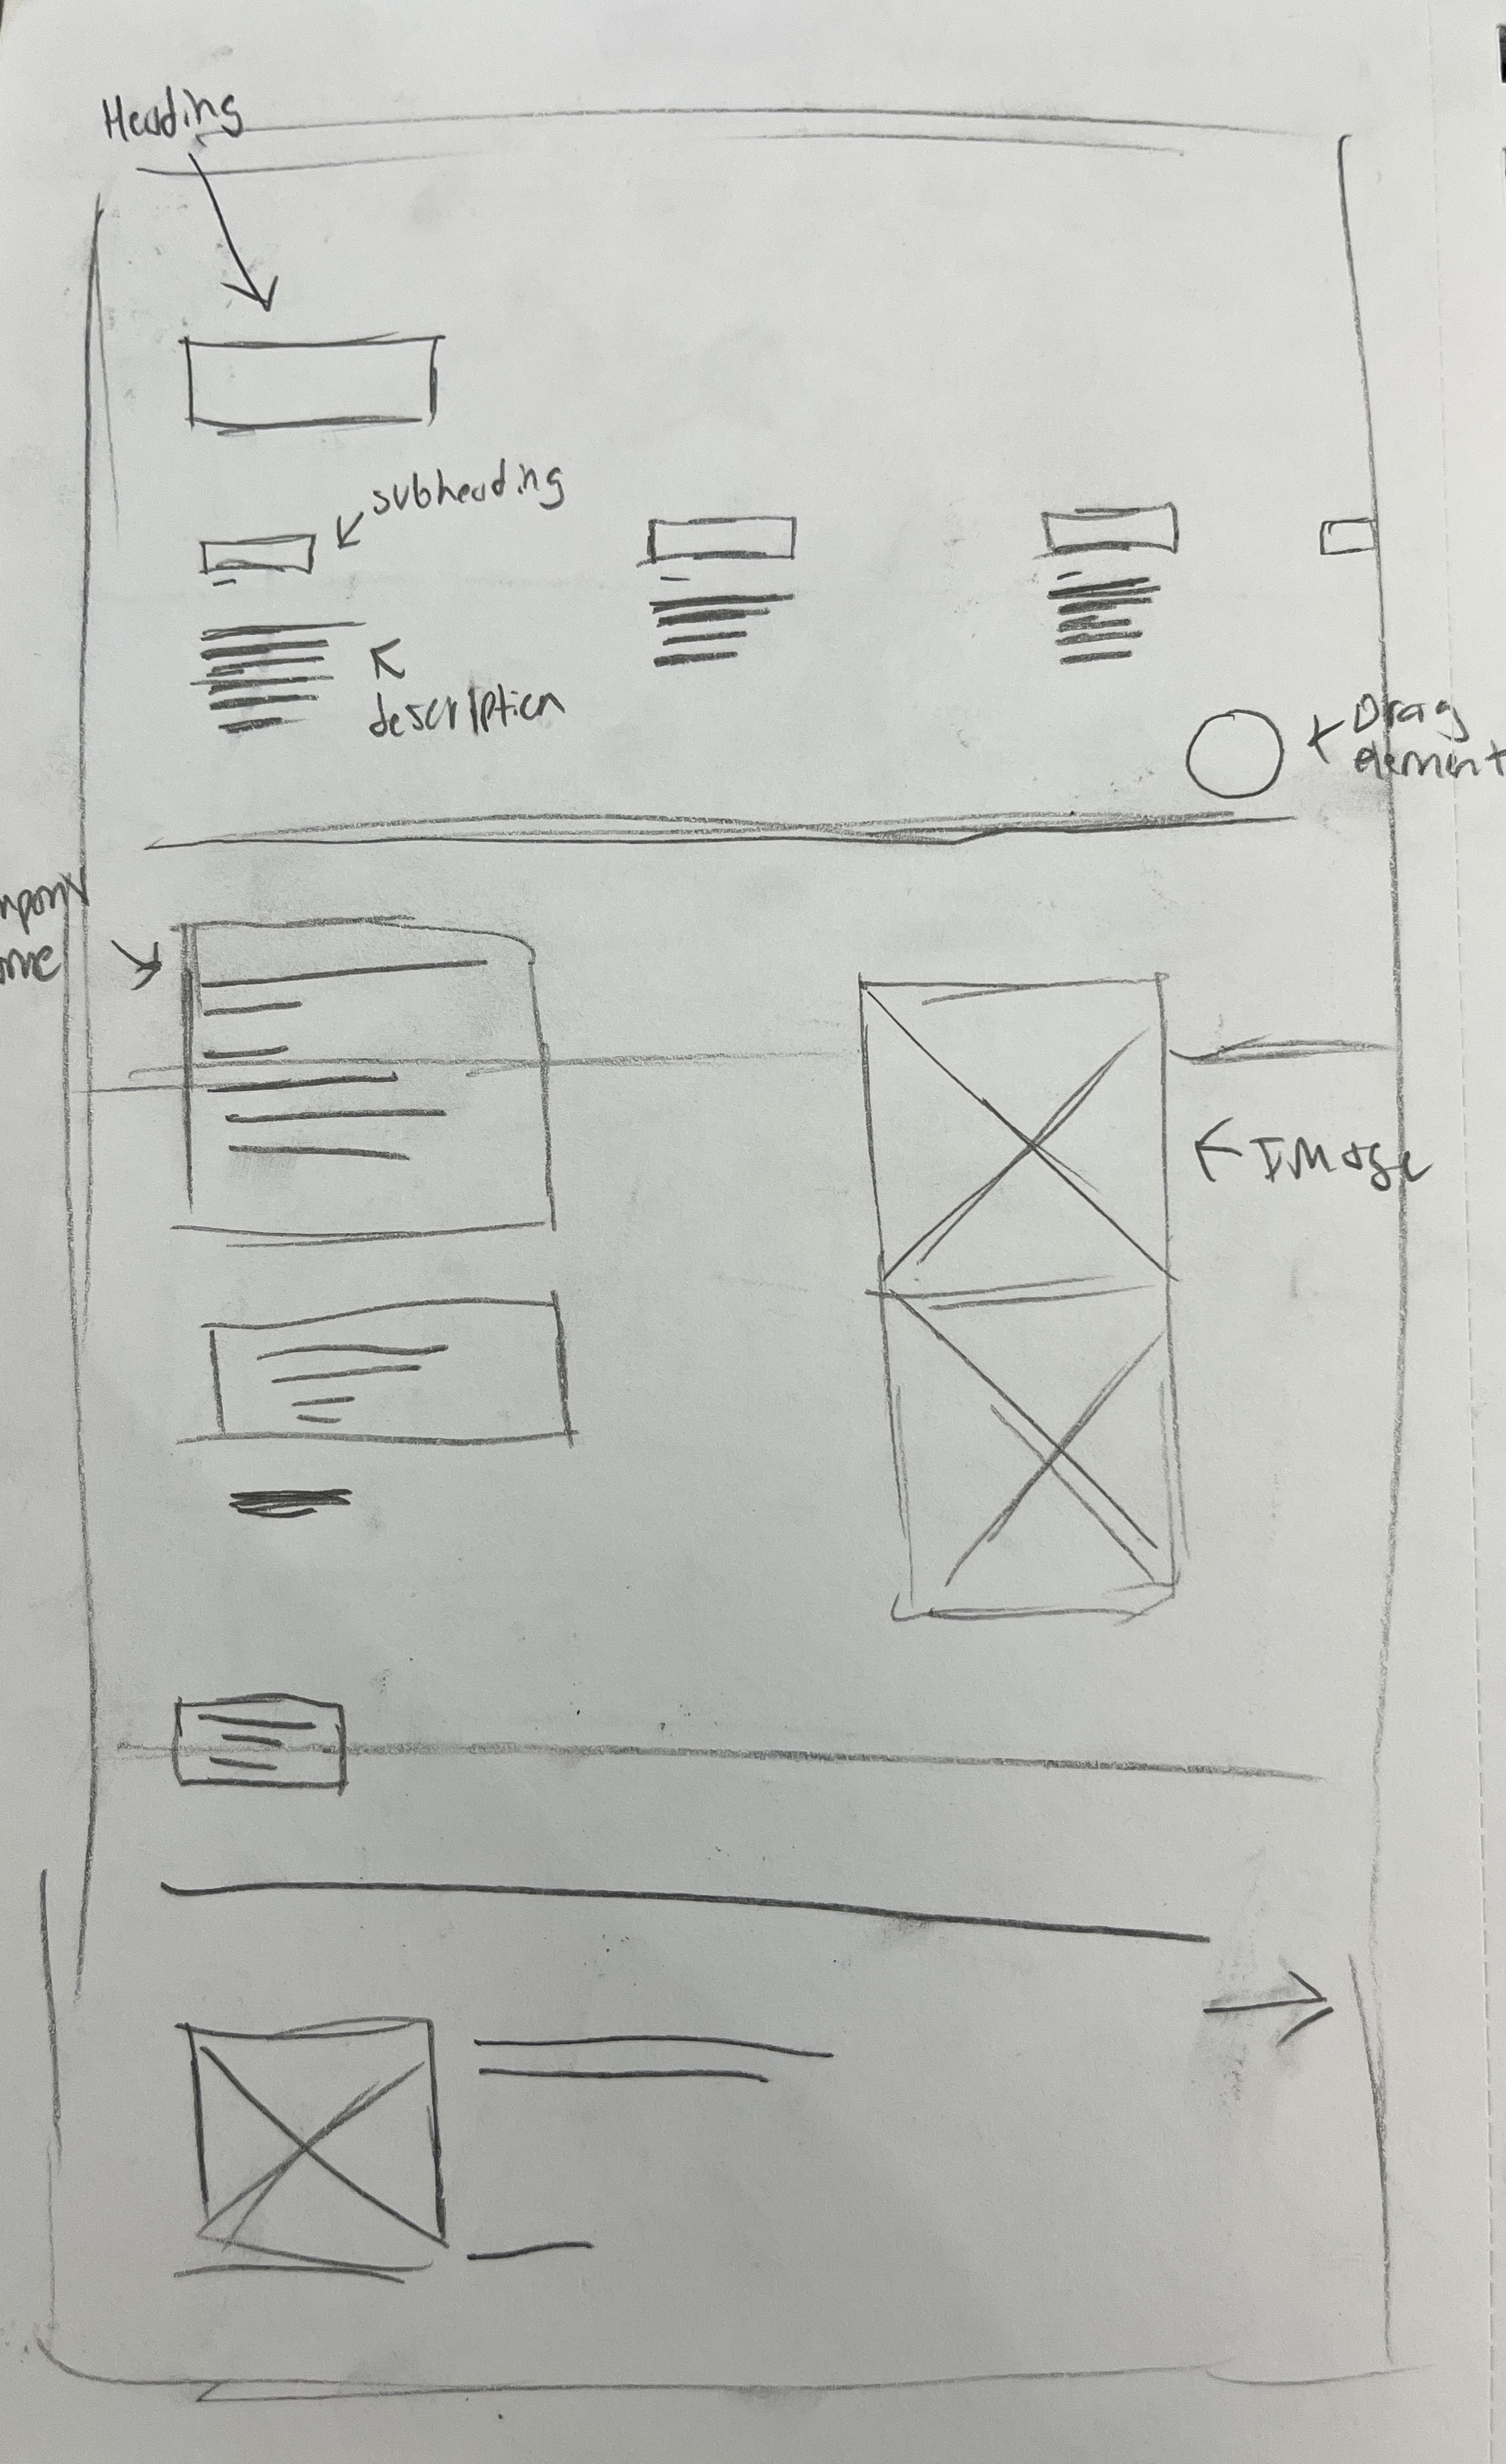 Heading
subheading
description
Drag
element
Image